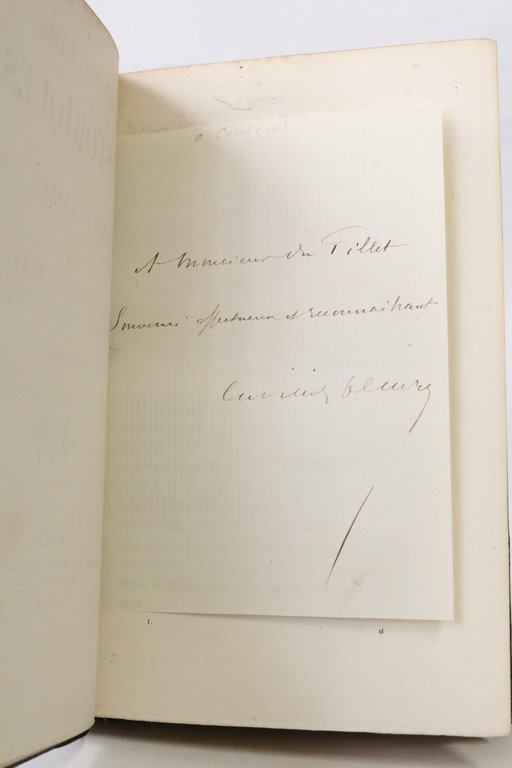 A Monsieur du Tillet
Souvenir affectueux et reconnaissant
Cuvillier Fleury
1. a